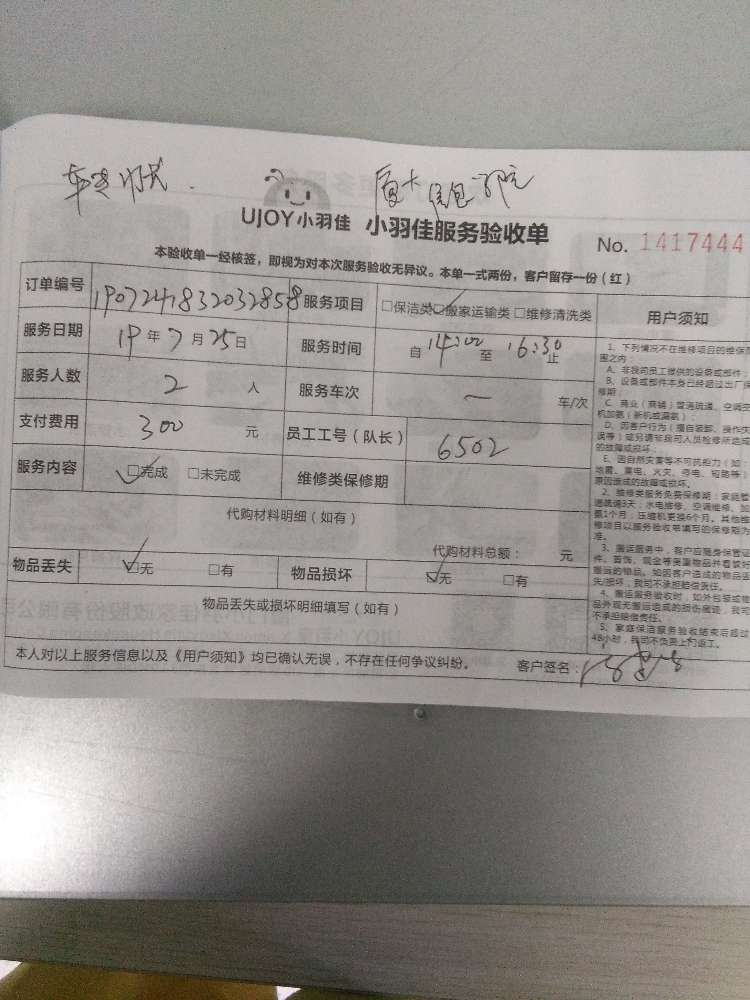 厦大信息学院
UJOY小羽佳 小羽佳服务验收单 No. 1417444
本验收单一经核签，即视为对本次服务验收无异议。本单一式两份，客户留存一份（红）
订单编号 190724183203285 服务项目 □保洁类 □搬家运输类 □维修清洗类 用户须知
服务日期 19年7月25日 服务时间 自14:00至16:30止
服务人数 2 人 服务车次 车/次
支付费用 300 元 员工工号（队长） 6502
服务内容 □完成 □未完成 维修类保修期
代购材料明细（如有）
代购材料总额： 元
物品丢失 □无 □有 物品损坏 □无 □有
物品丢失或损坏明细填写（如有）
本人对以上服务信息以及《用户须知》均已确认无误，不存在任何争议纠纷。 客户签名：
1、下列情况不在维修项目的维保范
围之内：
A、非我司员工提供的设备或部件；
B、设备或部件本身已经超过出厂保
修期；
C、商业（商铺）管道疏通、空调空
机加氨（新机或漏氨）；
D、因客户行为（擅自装卸、操作失
误等）或另请非我司人员检修所造成
的故障或损坏；
E、因自然灾害等不可抗拒力（如：
地震、雷电、火灾、停电、短路等）
原因造成的故障或损坏。
2、维修类服务免费保修期：家庭管
道疏通3天；水电维修、空调维修、加
氨1个月；压缩机更换6个月。其他维
修项目以服务验收单填写的保修期为
准。
3、搬运服务中，客户应随身保管证
件、首饰、现金等贵重物品并看管好
搬运的物品。如因客户造成的物品丢
失/损坏，我司不承担赔偿责任。
4、搬运服务验收时，如外包装或物
品外观无搬运造成的损伤痕迹，我司
不承担赔偿责任。
5、家庭保洁服务验收结束后超过
48小时，我司不负责上门返工。